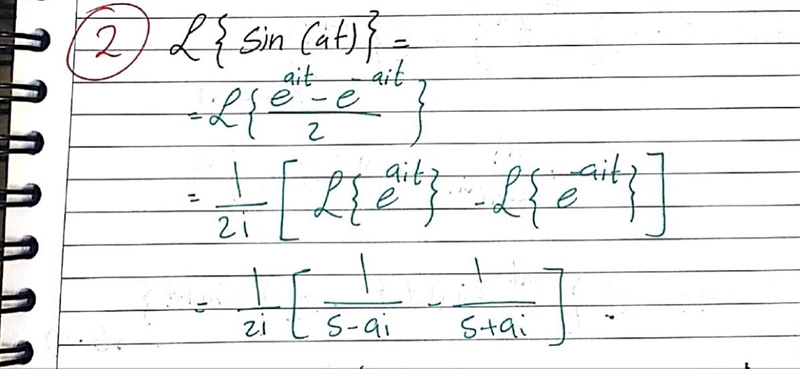 2 ℒ{ sin (at)} =
= ℒ{ (e^{ait} - e^{-ait}) / 2 }
= 1/2i [ ℒ{ e^{ait} } - ℒ{ e^{-ait} } ]
= 1/2i [ 1/(s-ai) - 1/(s+ai) ] .